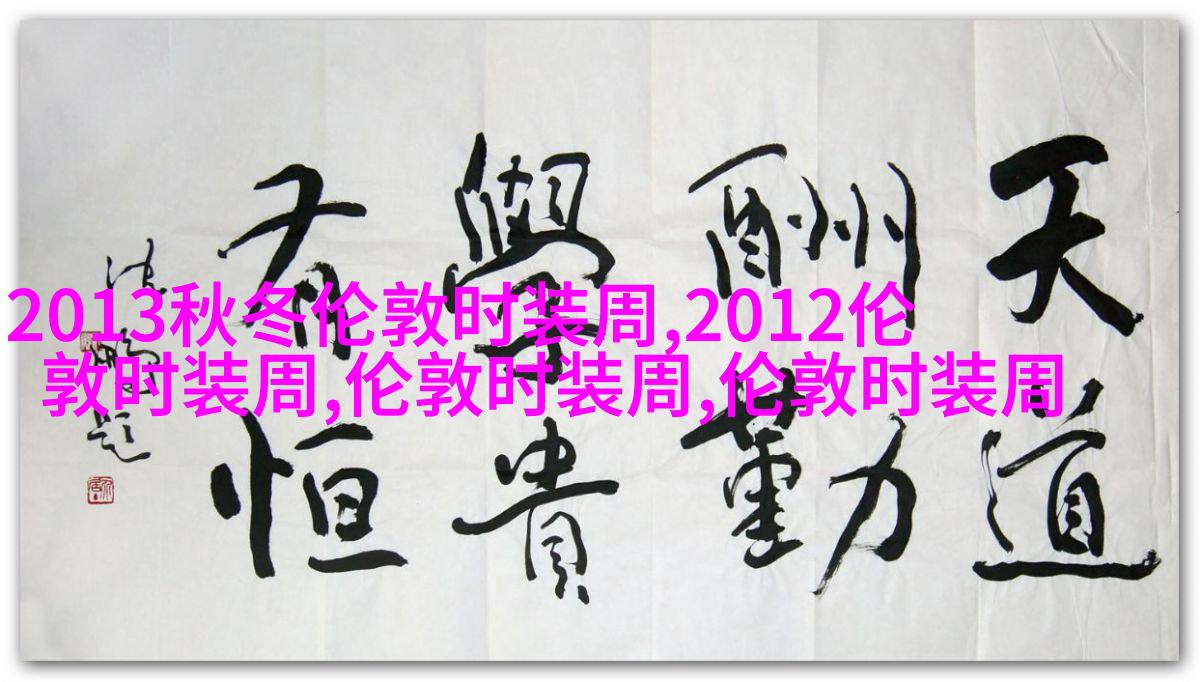 天道
酬勤
學貴
有恒
沈鹏题
2013秋冬伦敦时装周,2012伦
敦时装周,伦敦时装周,伦敦时装周